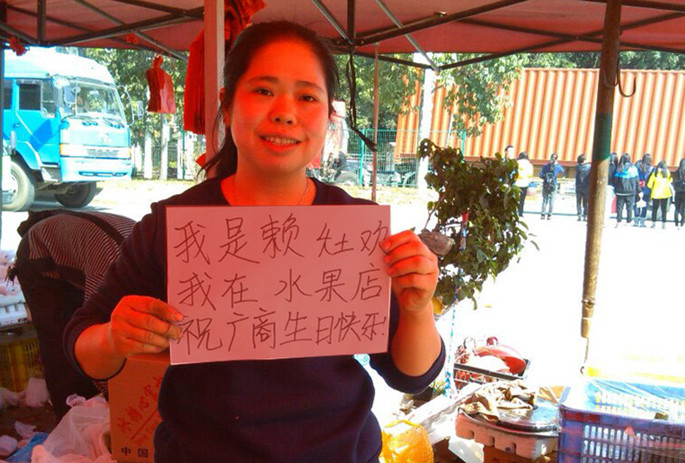 我是赖灶欢
我在水果店
祝广商生日快乐!
中国